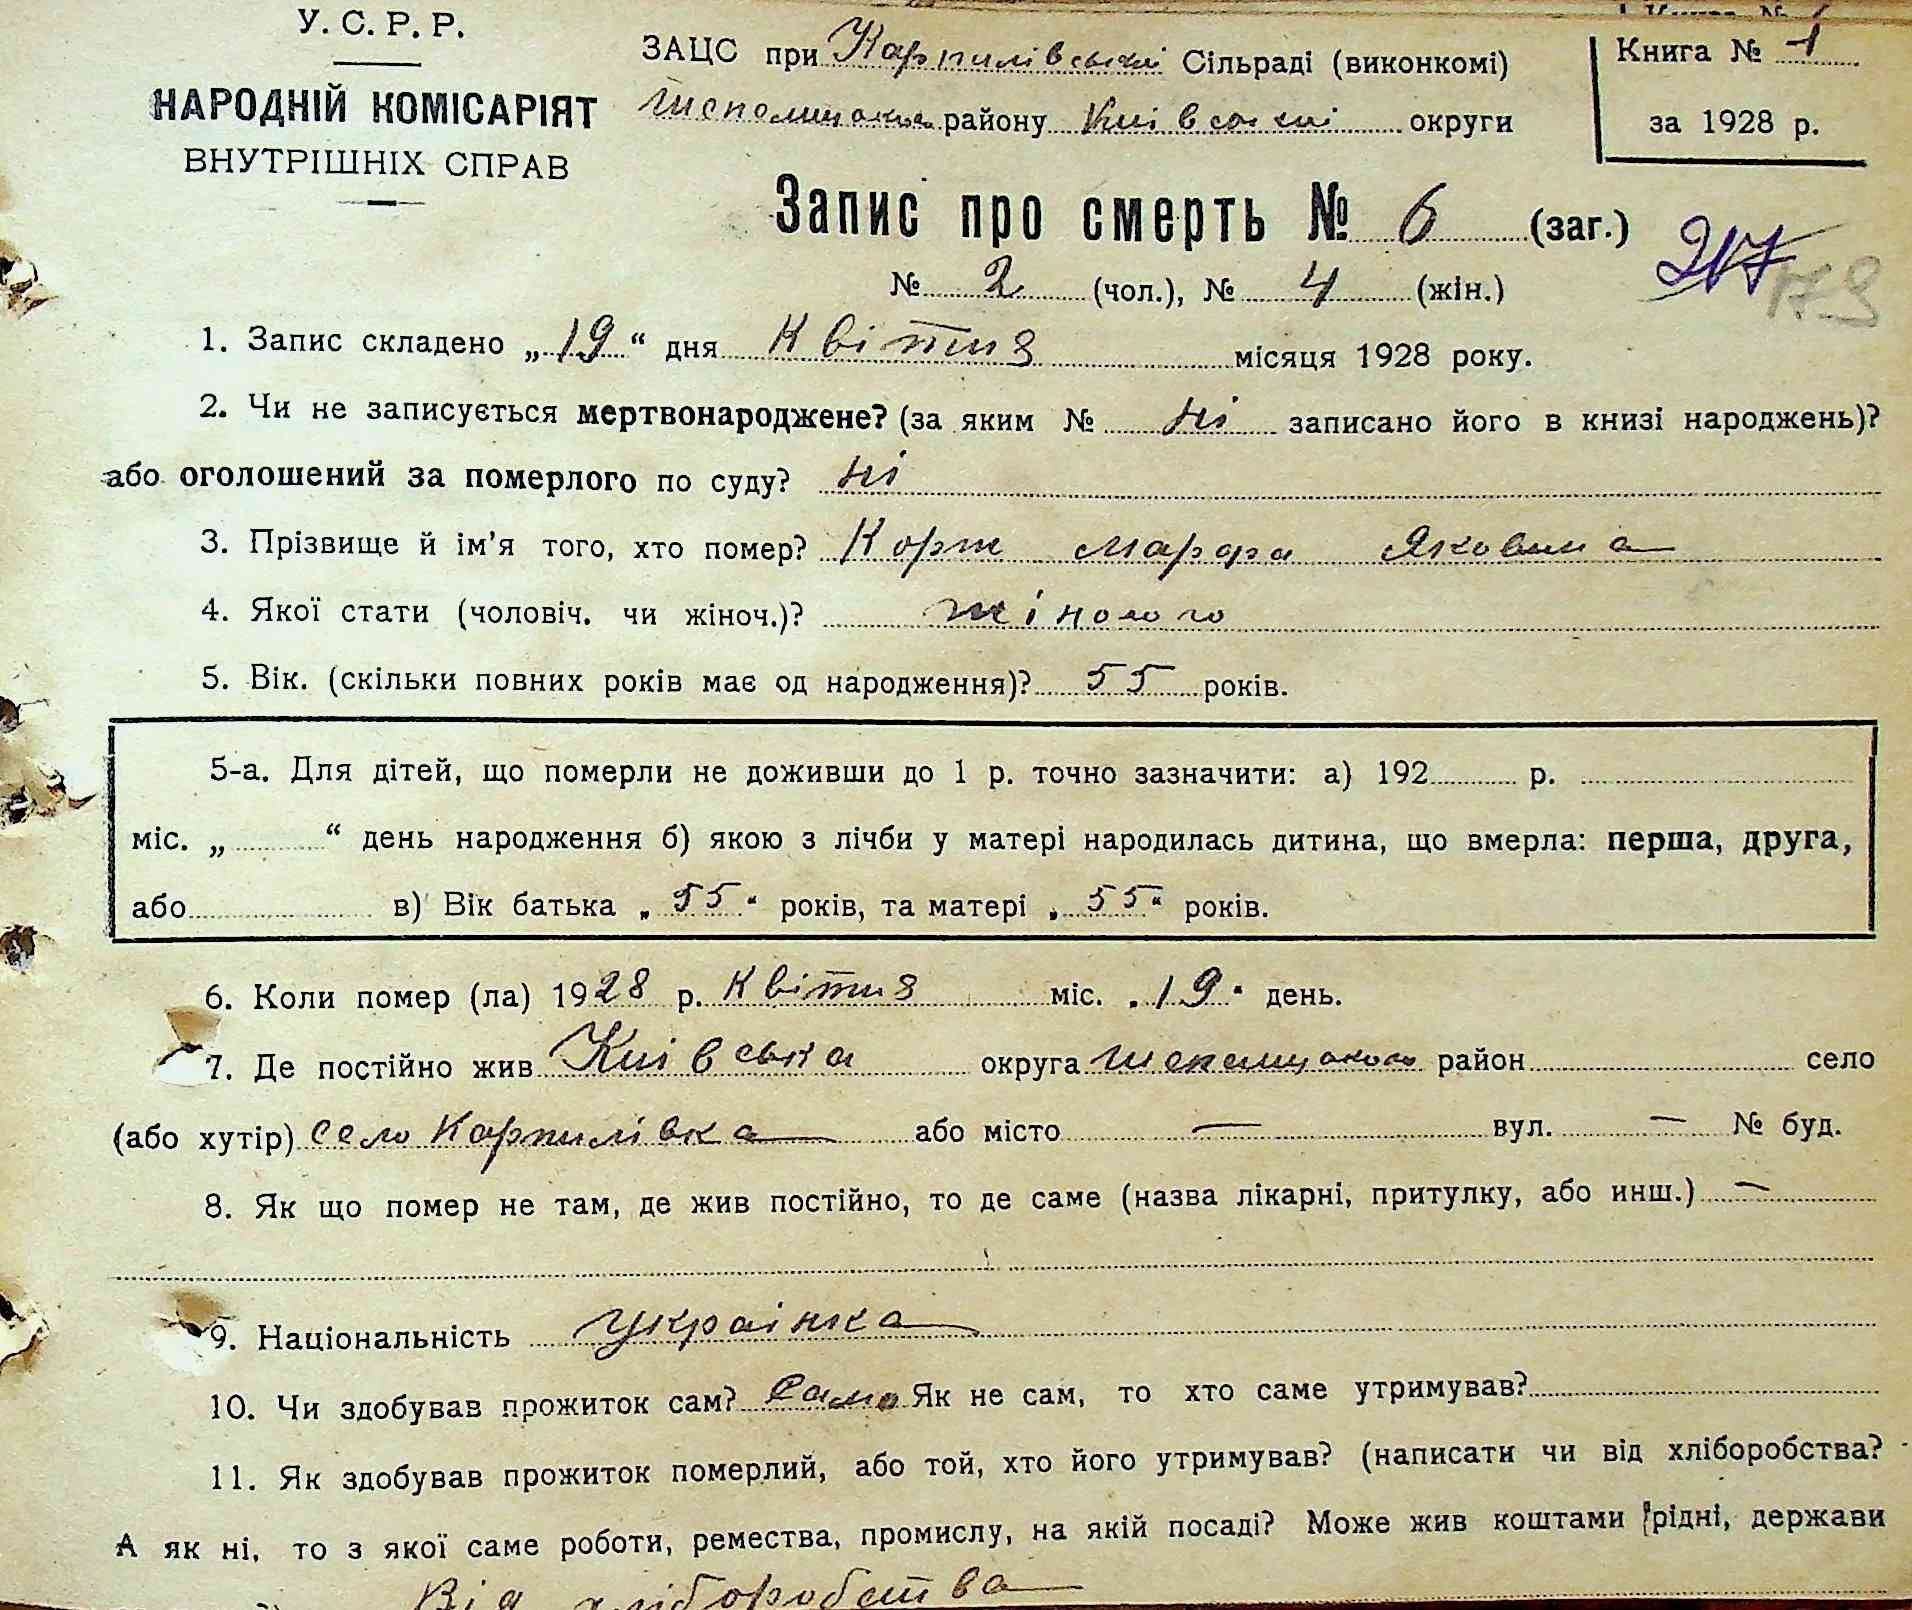 У. С. Р. Р.
НАРОДНІЙ КОМІСАРІЯТ
ВНУТРІШНІХ СПРАВ
ЗАЦС при Карпилівській Сільраді (виконкомі)
району Київської округи
Книга № 1
за 1928 р.
Запис про смерть № 6 (заг.)
217 179
№ 2 (чол.), № 4 (жін.)
1. Запис складено „19“ дня Квітня місяця 1928 року.
2. Чи не записується мертвонароджене? (за яким № ні записано його в книзі народжень)?
або оголошений за померлого по суду? ні
3. Прізвище й ім'я того, хто помер? Корж Марфа Яковина
4. Якої стати (чоловіч. чи жіноч.)? жіночого
5. Вік. (скільки повних років має од народження)? 55 років.
5-а. Для дітей, що померли не доживши до 1 р. точно зазначити: а) 192 р.
міс. „ “ день народження б) якою з лічби у матері народилась дитина, що вмерла: перша, друга,
або в) Вік батька „55“ років, та матері „55“ років.
6. Коли помер (ла) 1928 р. Квітня міс. „19“ день.
7. Де постійно жив Київська округа район село
(або хутір) село Карпилівка або місто — вул. — № буд.
8. Як що помер не там, де жив постійно, то де саме (назва лікарні, притулку, або инш.) —
9. Національність Українка
10. Чи здобував прожиток сам? Сама Як не сам, то хто саме утримував?
11. Як здобував прожиток померлий, або той, хто його утримував? (написати чи від хліборобства?
А як ні, то з якої саме роботи, ремества, промислу, на якій посаді? Може жив коштами рідні, держави
Від хліборобства